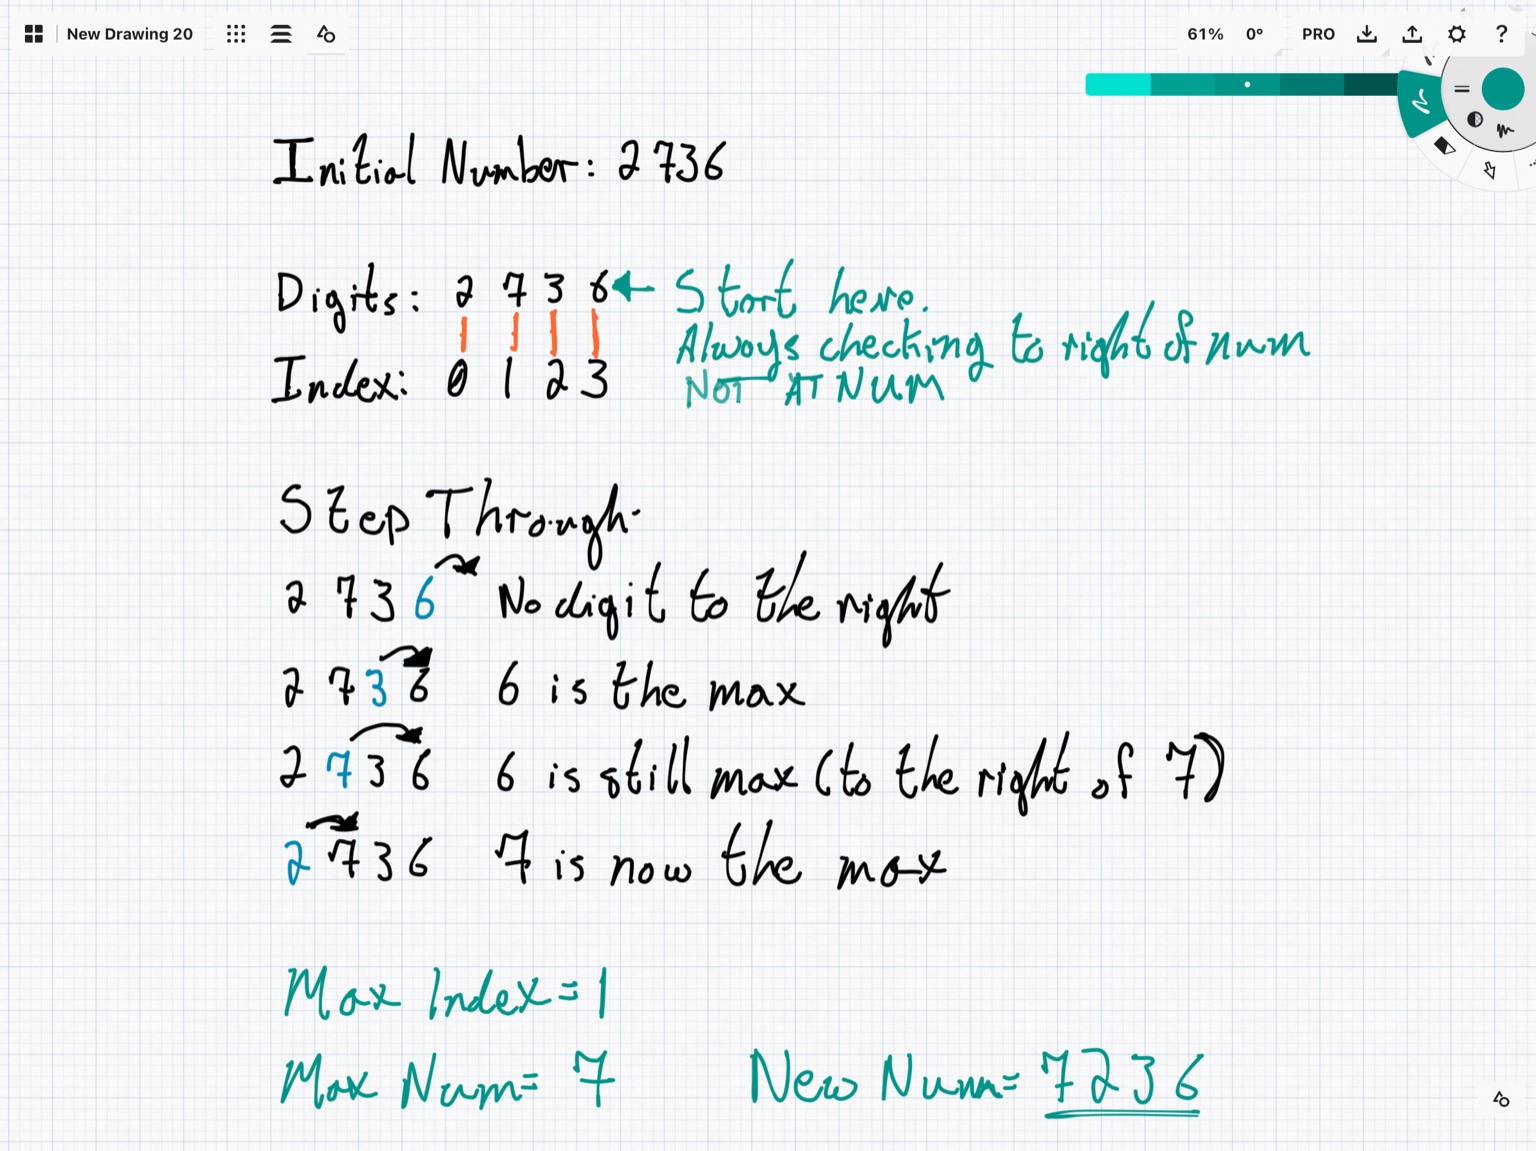 New Drawing 20
61% 0° PRO ?
Initial Number: 2736
Digits: 2 7 3 6 ← Start here.
Always checking to right of num
Index: 0 1 2 3 NOT AT NUM
Step Through.
2 7 3 6 No digit to the right
2 7 3 6 6 is the max
2 7 3 6 6 is still max (to the right of 7)
2 7 3 6 7 is now the max
Max Index = 1
Max Num = 7 New Num = 7236